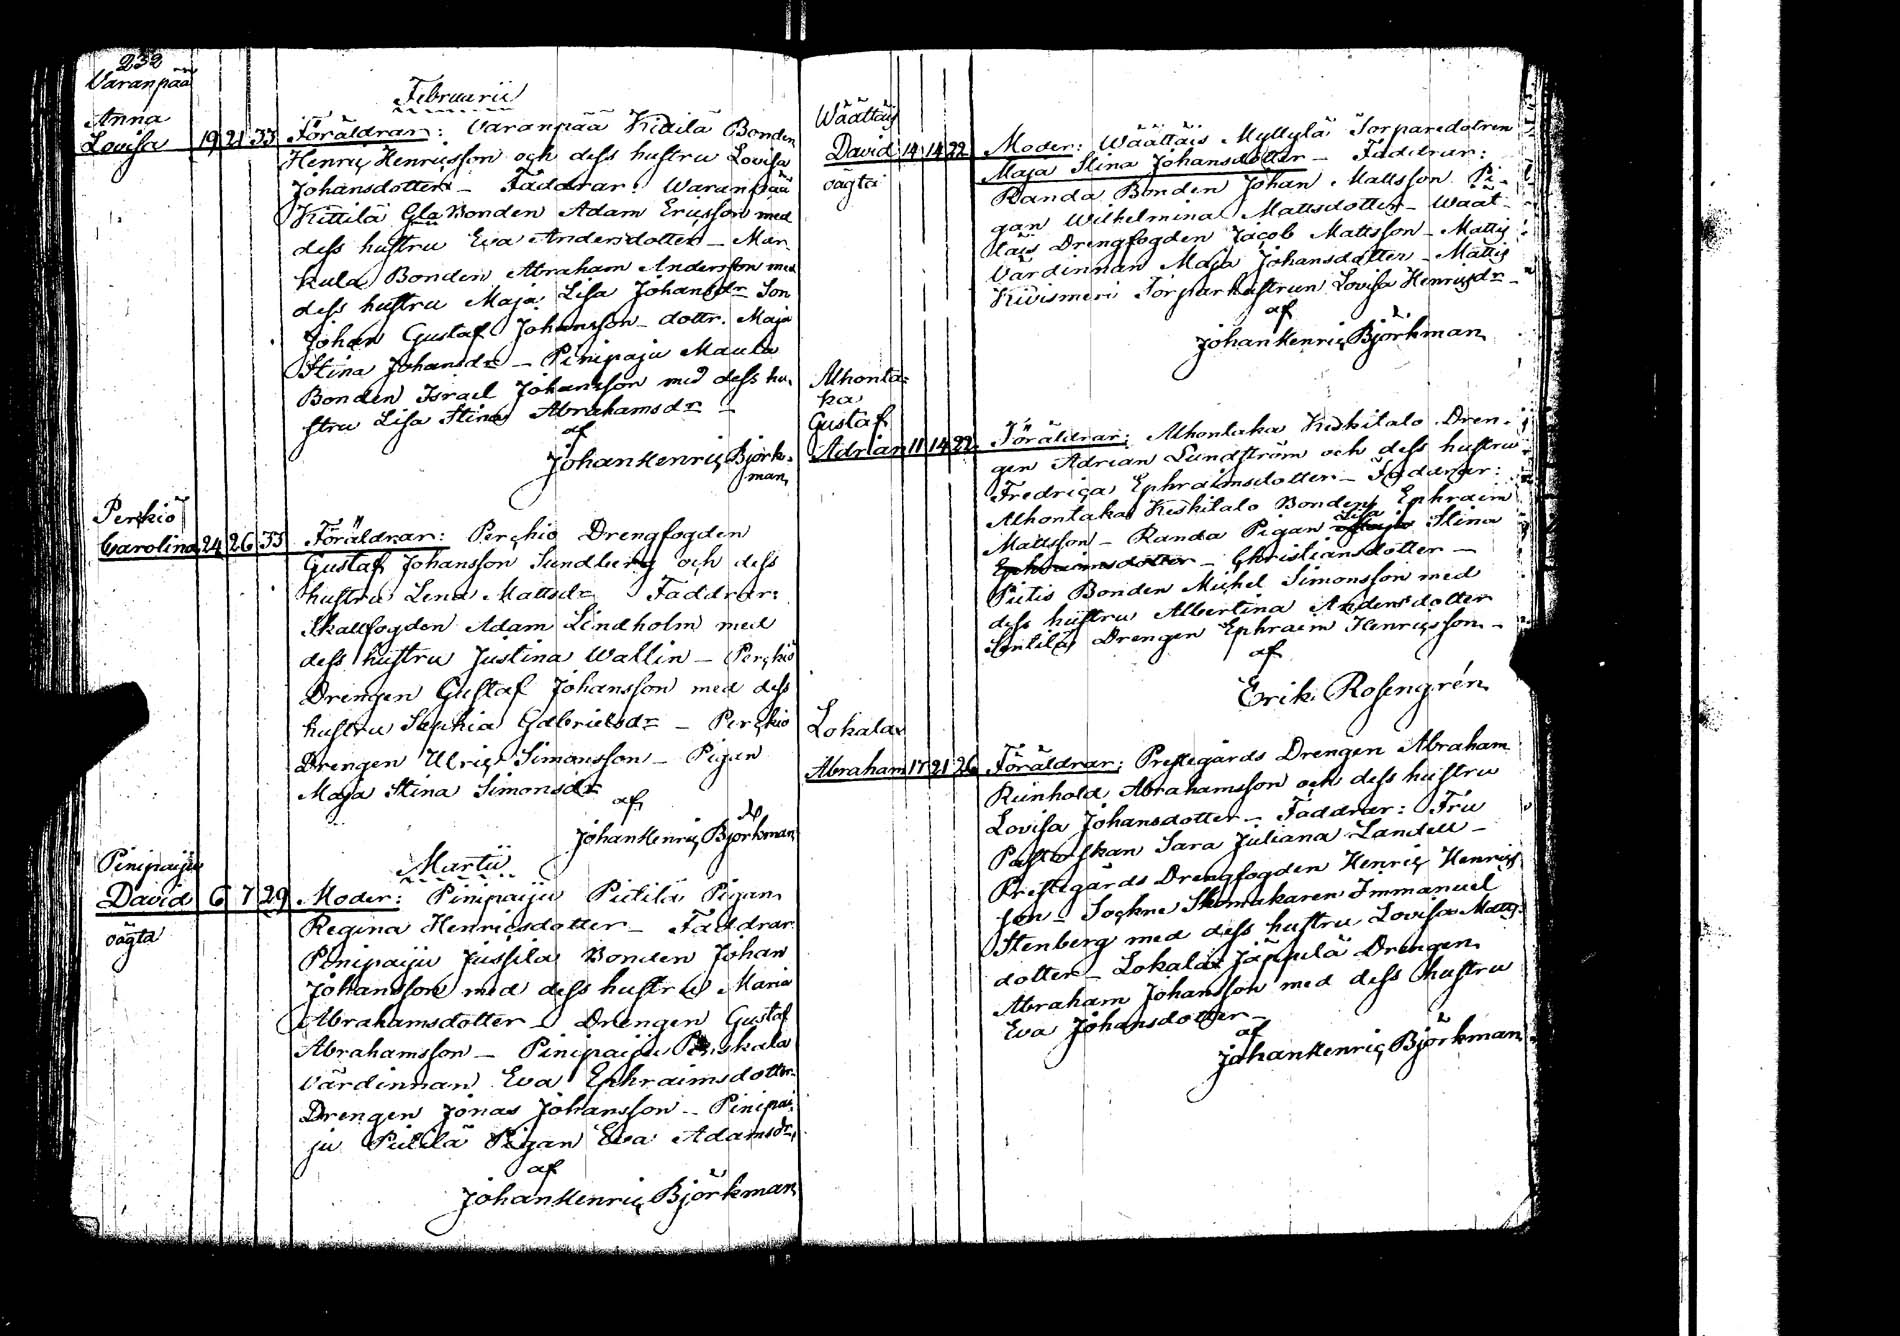 232
Varanpää
Februarii
Anna
Lovisa 19 21 33 Föräldrar: Varanpää Kitilä Bonden
Henric Henricsson och dess hustru Lovisa
Johansdotter – Faddrar: Waranpää
Kittilä Gla Bonden Adam Ericsson med
dess hustru Eva Andersdotter – Mar
kula Bonden Abraham Andersson med
dess hustru Maja Lisa Johansdr Son
Johan Gustaf Johansson – dottr. Maja
Stina Johansdr – Pinipaju Maula
Bonden Israel Johansson med dess hu-
stru Lisa Stina Abrahamsdr –
af
Johan Henric Björk-
man
Perkiö
Carolina 24 26 33 Föräldrar: Perckiö Drengfogden
Gustaf Johansson Sundberg och dess
hustru Lena Mattsdr Faddrar:
Skallfogden Adam Lindholm med
dess hustru Justina Wallin – Perckiö
Drengen Gustaf Johansson med dess
hustru Sophia Gabrielsdr – Perckiö
Drengen Ulric Simonsson – Pigan
Maja Stina Simonsdr
af
Johan Henric Björkman
Martii
Pinipaiju
David 6 7 29 Moder: Pinipaiju Pietilä Pigan
oägta
Regina Henricsdotter – Faddrar
Pinipaiju Jussila Bonden Johan
Johansson med dess hustru Maria
Abrahamsdotter – Drengen Gustaf
Abrahamsson – Pinipaiju Penskala
värdinnan Eva Ephraimsdotter
Drengen Jonas Johansson – Pinipai-
ju Pietilä Pigan Eva Adamsdr
af
Johan Henric Björkman
Wäättäis
David 14 14 22 Moder: Wäättäis Myllylä Torparedotren
oägta
Maja Stina Johansdotter – Faddrar:
Randa Bonden Johan Mattsson Pi-
gan Wilhelmina Mattsdotter – Wäät-
täis Drengfogden Jacob Mattsson – Mattis
Värdinnan Maja Johansdotter – Mattis
Kivismeri Torparhustrun Lovisa Henricsdr –
af
Johan Henric Björkman
Alhonta-
ka
Gustaf
Adrian 11 14 22 Föräldrar: Alhontaka Keskitalo Dren-
gen Adrian Lundström och dess hustru
Fredrica Ephraimsdotter – Faddrar:
Alhontaka Keskitalo Bonden Ephraim
Mattsson – Randa Pigan Lisa Stina
Ephraimsdotter – Christiansdotter –
Pietis Bonden Michel Simonsson med
dess hustru Albertina Andersdotter
Drengen Ephraim Henricsson –
af
Erik Rosengrén
Lokalax
Abraham 17 21 26 Föräldrar: Prestegårds Drengen Abraham
Reinhold Abrahamsson och dess hustru
Lovisa Johansdotter – Faddrar: Fru
Pastorskan Sara Juliana Landell –
Prestegårds Drengfogden Henric Henrics-
son – Sockne Skomakaren Immanuel
Stenberg med dess hustru Lovisa Matts-
dotter – Lokalax Jäppilä Drengen
Abraham Johansson med dess hustru
Eva Johansdotter –
af
Johan Henric Björkman